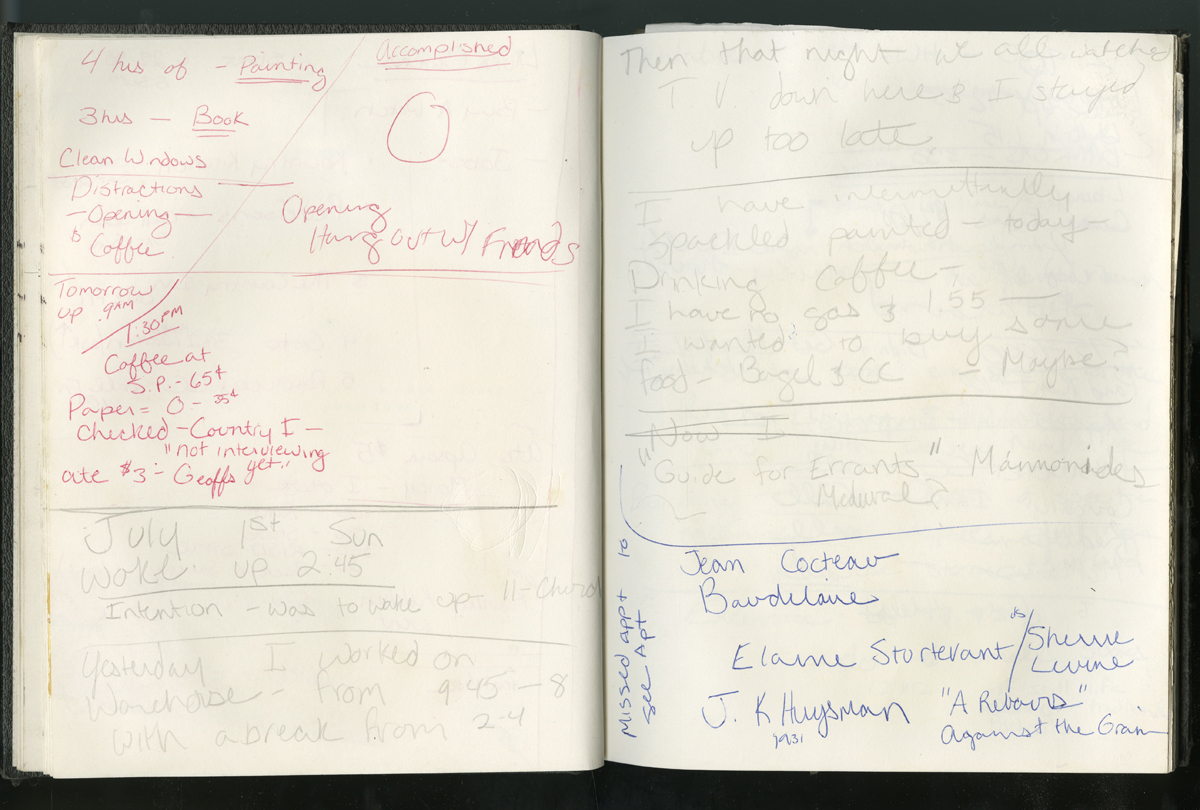 4 hrs of - Painting
3 hrs - Book
Clean Wndows
Accomplished
O
Distractions
- Opening -
& Coffee
Opening
Hang out w/ Friends
Tomorrow
up 9AM
1:30PM
Coffee at
S.P. - 65¢
Paper = 0 - 35¢
Checked - Country I -
"not interviewing
yet."
ate $3 - Geoffs
July 1st Sun
Woke up 2:45
Intention - was to wake up - 11 - Church
Yesterday I worked on
Warehouse - from 9:45 - 8
with a break from 2-4
Then that night we all watched
T.V. down here & I stayed
up too late.
I have intermittently
spackled painted - today -
Drinking Coffee -
I have no gas & 1.55 -
I wanted to buy some
food - Bagel & CC - Maybe?
Now I
"Guide for Errants" Mannonides
Medieval?
Missed appt to
see Apt
Jean Cocteau
Baudelaire
Elaine Sturtevant / Sherrie
Levine
J. K Huysman "A Rebours"
1931 Against the Grain